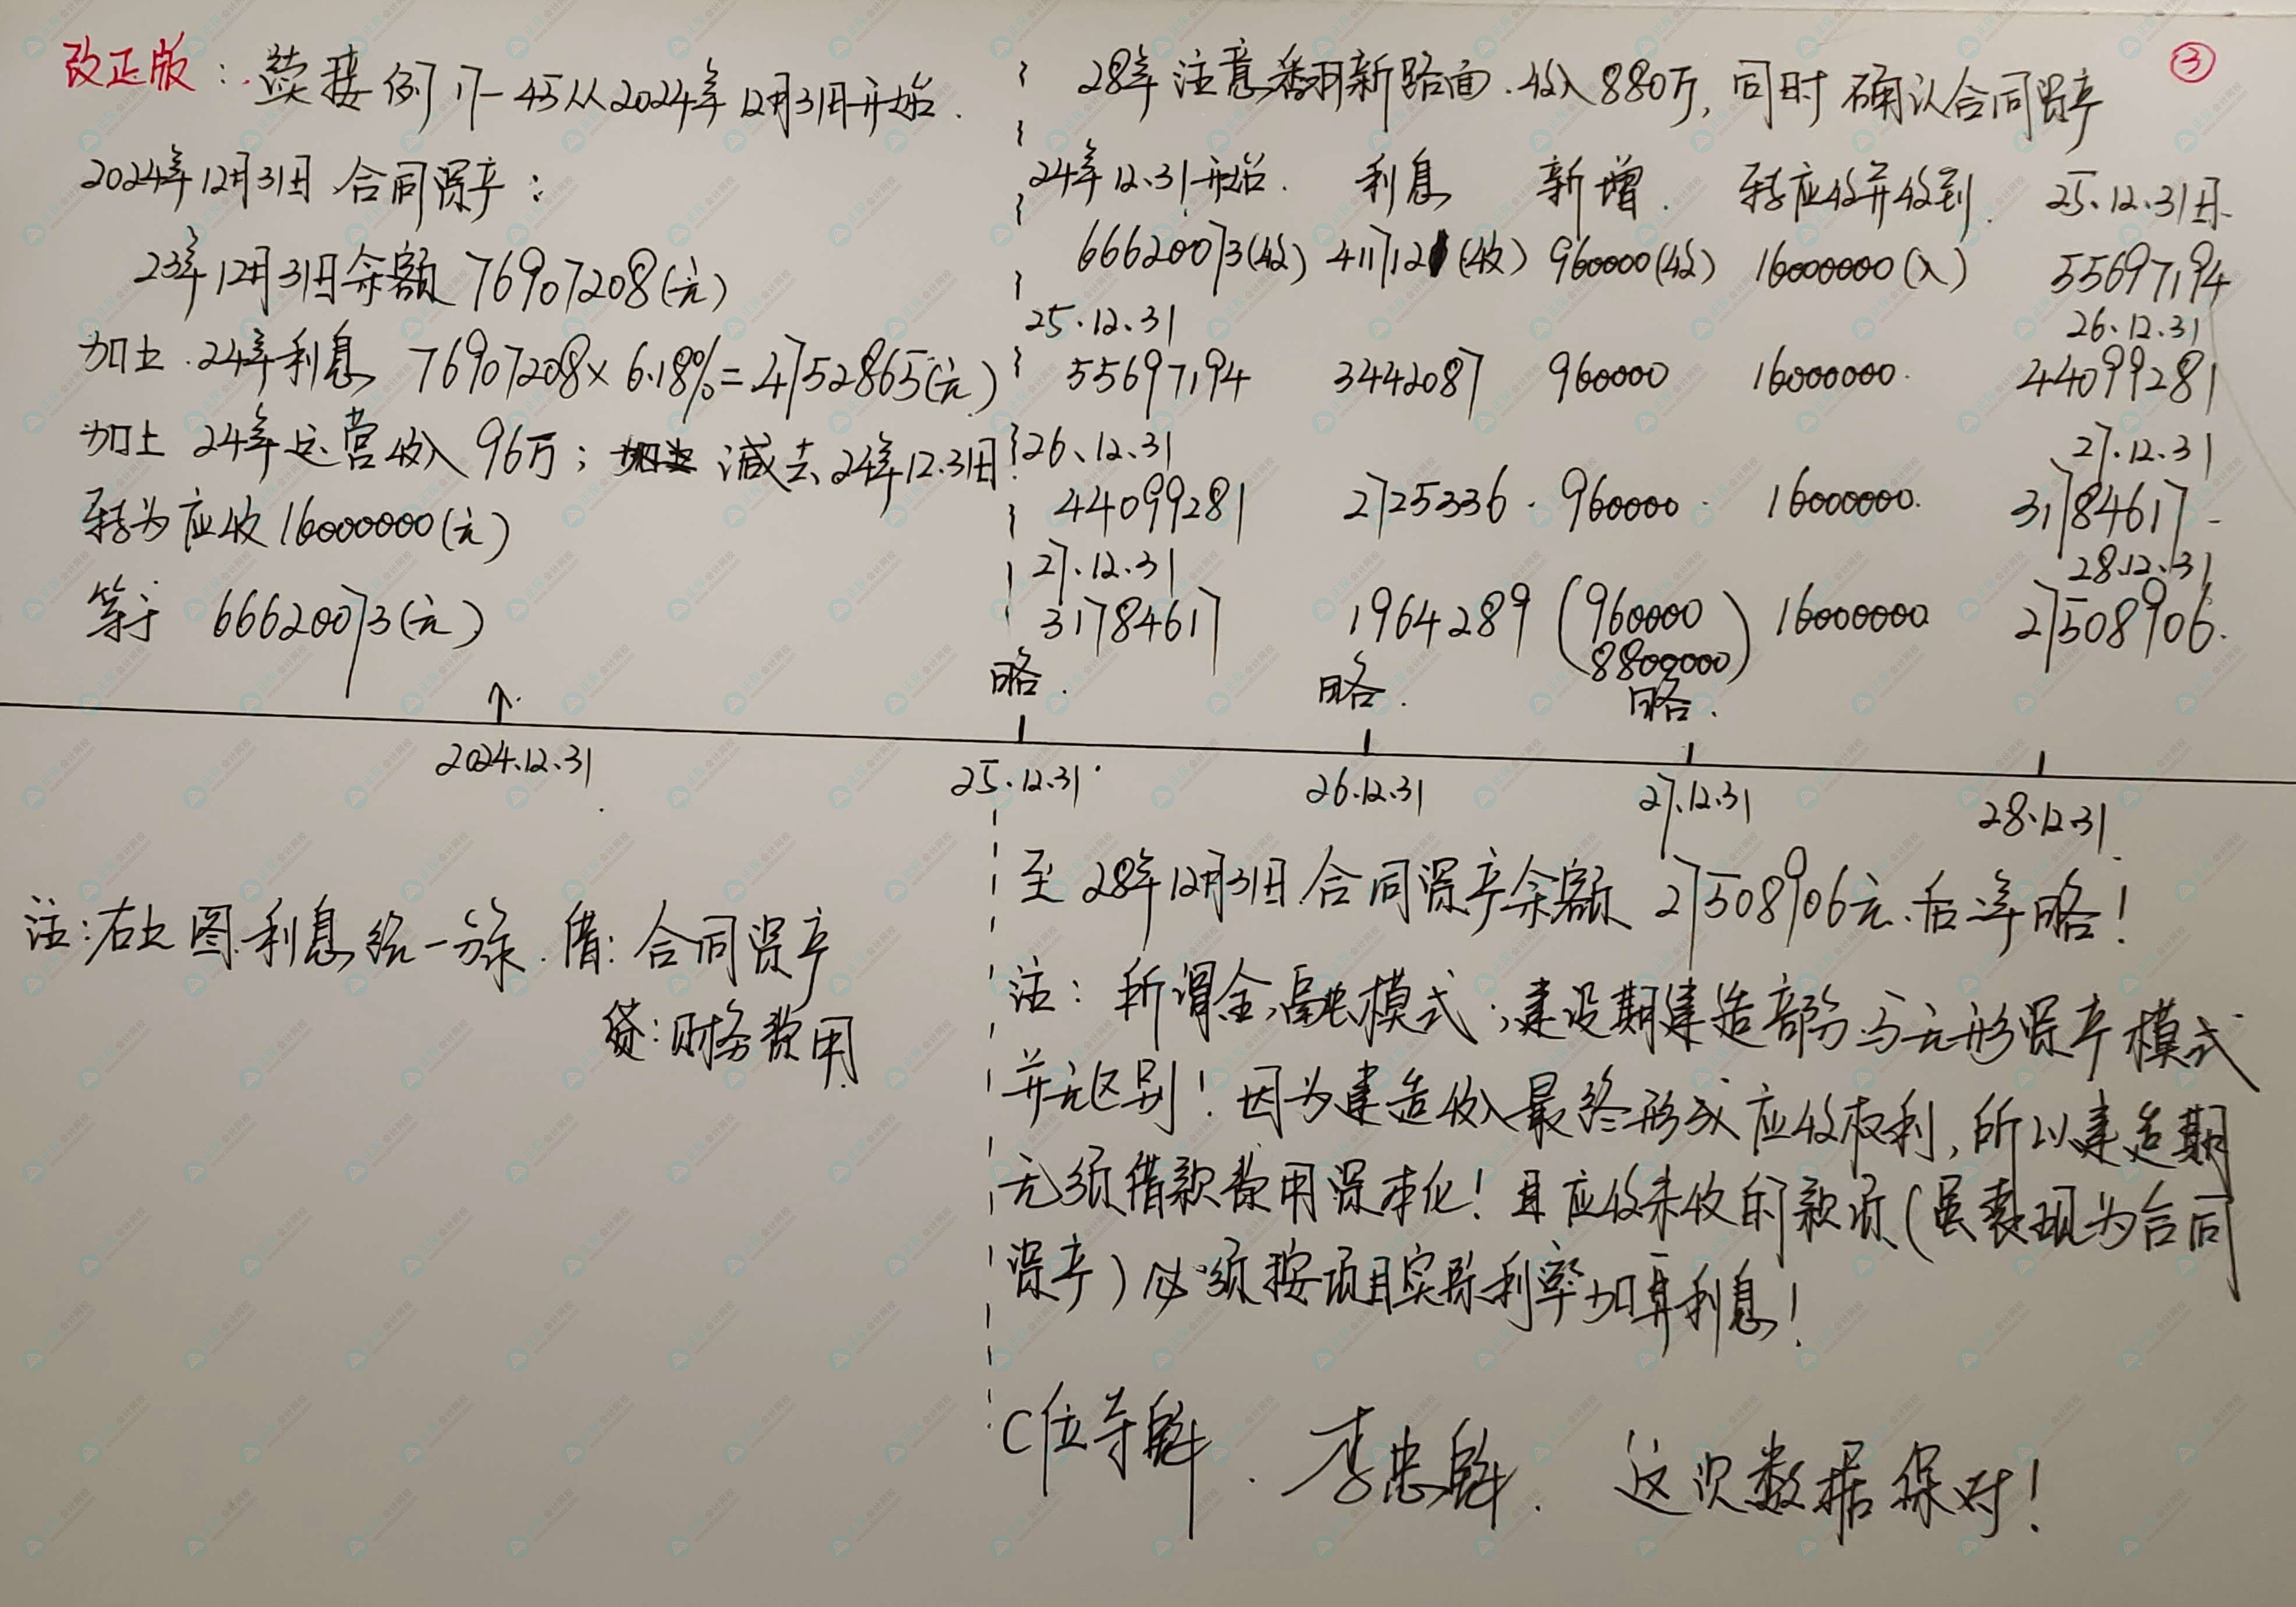 改正版：续接例17-45从2024年12月31日开始.
2024年12月31日合同资产：
23年12月31日余额76907208(元)
加上.24年利息 76907208×6.18%=4752865(元)
加上 24年运营收入96万; 减去24年12.31日
转为应收16000000(元)
等于 66620073(元)
③
28年注意翻新路面.收入880万,同时确认合同资产
24年12.31开始. 利息 新增. 转应收并收到. 25.12.31日.
66620073(收) 4117121(收) 960000(收) 16000000(入) 55697194
25.12.31 26.12.31
55697194 3442087 960000 16000000. 44099281
26.12.31 27.12.31
44099281 2725336. 960000. 16000000. 31784617
27.12.31 28.12.31
31784617 1964289 (960000 8800000) 16000000 27508906.
略. 略. 略.
2024.12.31 25.12.31 26.12.31 27.12.31 28.12.31
注:右上图.利息统一分录.借:合同资产
贷:财务费用
至28年12月31日合同资产余额27508906元.后年略!
注:所谓金融模式,建设期建造部分与无形资产模式
并无区别!因为建造收入最终形成应收权利,所以建造期
无须借款费用资本化!且应收未收的款项(虽表现为合同
资产)必须按项目实际利率加算利息!
C位导解. 李忠魁. 这次数据保对!
会计网校